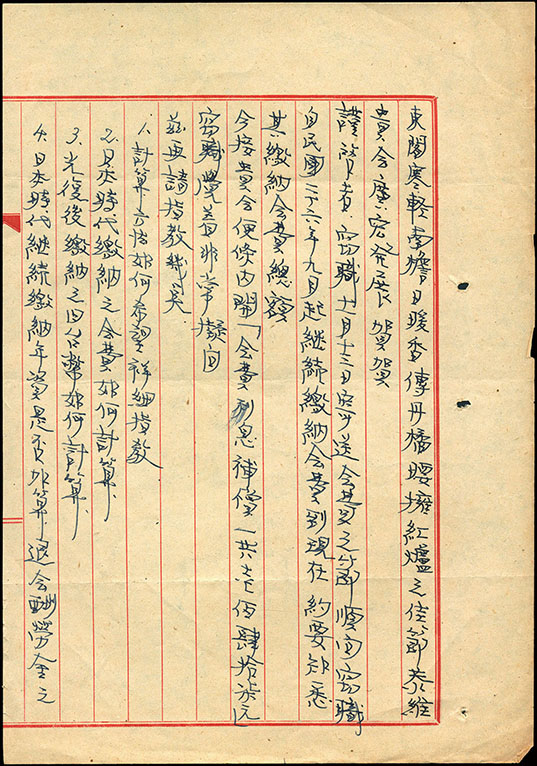 東閣寒輕南檐日暖香傳丹橘暖擁紅爐之佳節恭維
貴会廣宏発展 賀賀
謹啓者 窃職十一月十三日 送会費之節順向窃職
自民國三六年九月起継続繳納会費到現在約要知悉
其繳納会費總額
今接貴会便條内開「会費利息補償一共壱佰肆拾柒元」
窃職覺着非常擬問
茲再請指教幾矣
1. 計算方法如何希望祥細指教
2. 日本時代繳納之会費如何計算.
3. 光復後繳納之旧台幣如何計算.
4. 日本時代継続繳納年資是否加算退会酬勞金之